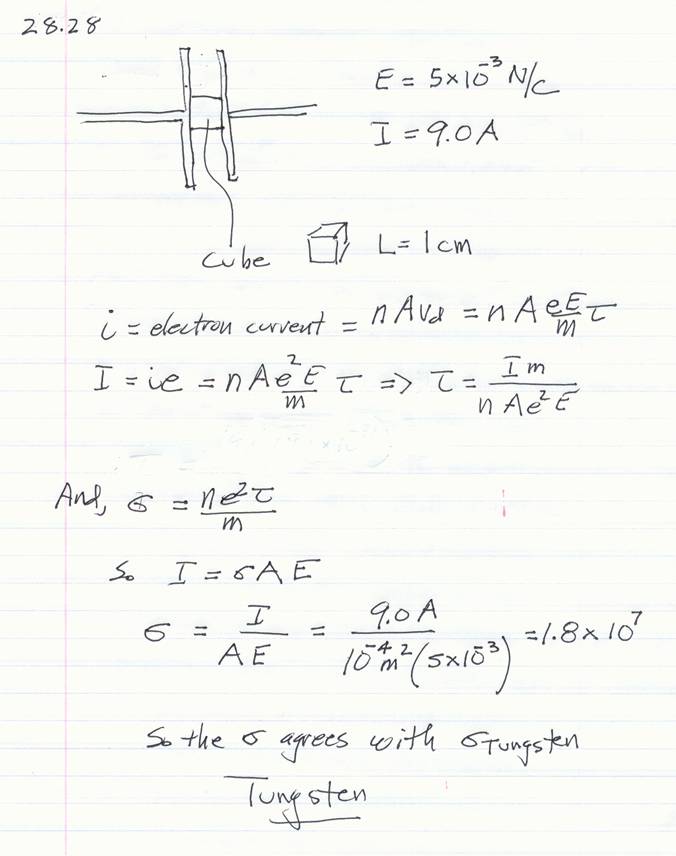 28.28
E = 5×10⁻³ N/C
I = 9.0 A
Cube
L = 1 cm
i = electron current = nAvd = nA eE/m τ
I = ie = nA e²E/m τ => τ = Im/nAe²E
And, σ = ne²τ/m
So I = σAE
σ = I/AE = 9.0 A/10⁻⁴m²(5×10⁻³) = 1.8×10⁷
So the σ agrees with σTungsten
Tungsten